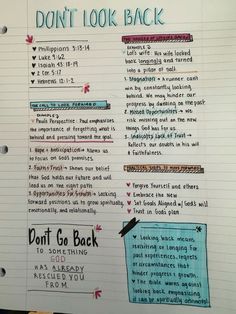 DON'T LOOK BACK
♥ Philippians 3:13-14
♥ Luke 9:62
♥ Isaiah 43:18-19
♥ 2 Cor 5:17
♥ Hebrews 12:1-2
THE CALL TO LOOK FORWARD
♡ Pauls Perspective: Paul emphasizes
the importance of forgetting what is
behind and pressing toward the goal.
1. Hope + Anticipation: allows us
to focus on God's promises
2. Faith + Trust → Shows our belief
that God holds our future and will
lead us on the right path.
3. Opportunities for Growth → Looking
forward positions us to grow spiritually,
emotionally, and relationally.
Don't Go Back
TO SOMETHING
GOD
HAS ALREADY
RESCUED YOU
FROM.
THE DANGERS OF LOOKING BACK
EXAMPLE
Lot's wife: His wife looked
back longingly and turned
into a pillar of salt.
1. Stagnation → a runner can't
win by constantly looking
behind. We may hinder our
progress by dwelling on the past
2. Missed Opportunities → we
risk missing out on the new
things God has for us.
3. Indicates Lack of Trust →
Reflects our doubts in his will
+ faithfulness.
♥ Forgive Yourself and Others
♥ Embrace the New
♥ Set Goals Aligned w/ God's will
♥ Trust in God's plan
♥ Looking back means
revisiting or longing for
past experiences, regrets
or circumstances that
hinder progress + growth.
♥ The Bible warns against
looking back emphasizing
it can be spiritually